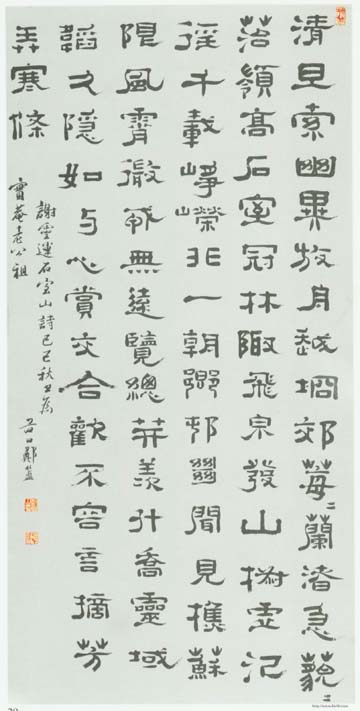 清旦索幽異放舟越坰郊莓〻蘭渚急藐〻
苔嶺高石室冠林陬飛泉發山椒虛汎
徑千載崢嶸非一朝鄉邨絕聞見樵蘇
限風霄微戎無遠覽總笄羨升喬靈域
韜久隱如与心賞交合歡不容言摘芳
弄寒條
謝靈運石室山詩己巳秋為
寶菴老公祖
谷口鄭簠